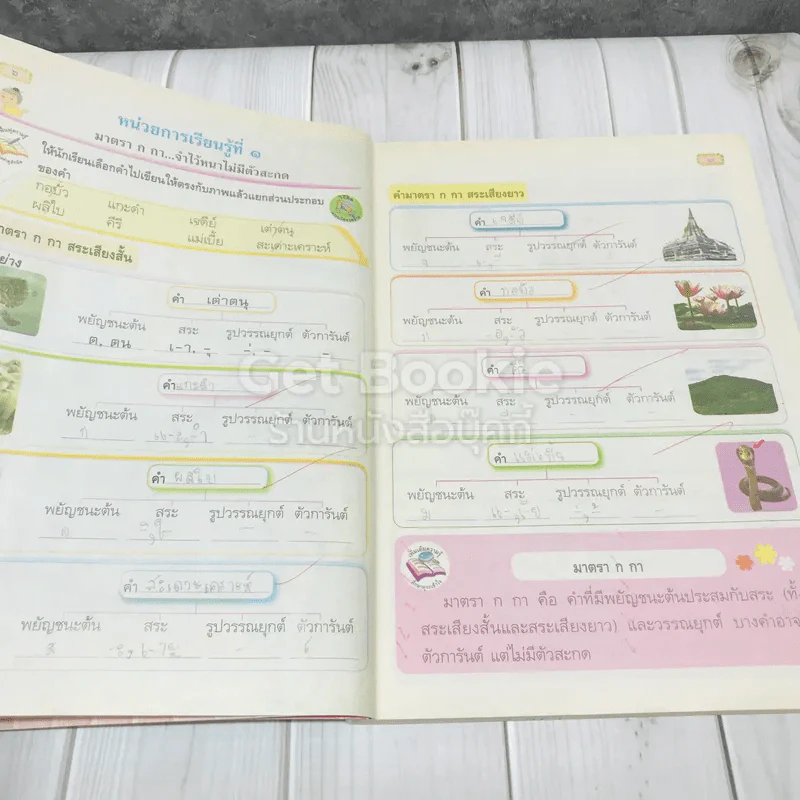 ๒
หน่วยการเรียนรู้ที่ ๑
มาตรา ก กา...จำไว้หนาไม่มีตัวสะกด
ให้นักเรียนเลือกคำไปเขียนให้ตรงกับภาพแล้วแยกส่วนประกอบ
ของคำ
กอบัว แกะดำ เจดีย์ เต่าตนุ
ผลิใบ คีรี แม่เบี้ย สะเดาะเคราะห์
ตรา ก กา สระเสียงสั้น
ย่าง
คำ เต่าตนุ
พยัญชนะต้น สระ รูปวรรณยุกต์ ตัวการันต์
ต, ตน เ-า, -ุ
คำ แกะดำ
พยัญชนะต้น สระ รูปวรรณยุกต์ ตัวการันต์
คำ ผลิใบ
พยัญชนะต้น สระ รูปวรรณยุกต์ ตัวการันต์
คำ สะเดาะเคราะห์
พยัญชนะต้น สระ รูปวรรณยุกต์ ตัวการันต์
คำมาตรา ก กา สระเสียงยาว
คำ เจดีย์
พยัญชนะต้น สระ รูปวรรณยุกต์ ตัวการันต์
คำ กอบัว
พยัญชนะต้น สระ รูปวรรณยุกต์ ตัวการันต์
คำ คีรี
พยัญชนะต้น สระ รูปวรรณยุกต์ ตัวการันต์
คำ แม่เบี้ย
พยัญชนะต้น สระ รูปวรรณยุกต์ ตัวการันต์
มาตรา ก กา
มาตรา ก กา คือ คำที่มีพยัญชนะต้นประสมกับสระ (ทั้ง
สระเสียงสั้นและสระเสียงยาว) และวรรณยุกต์ บางคำอาจ
ตัวการันต์ แต่ไม่มีตัวสะกด
Get Bookie
ร้านหนังสือบุ๊คกี้